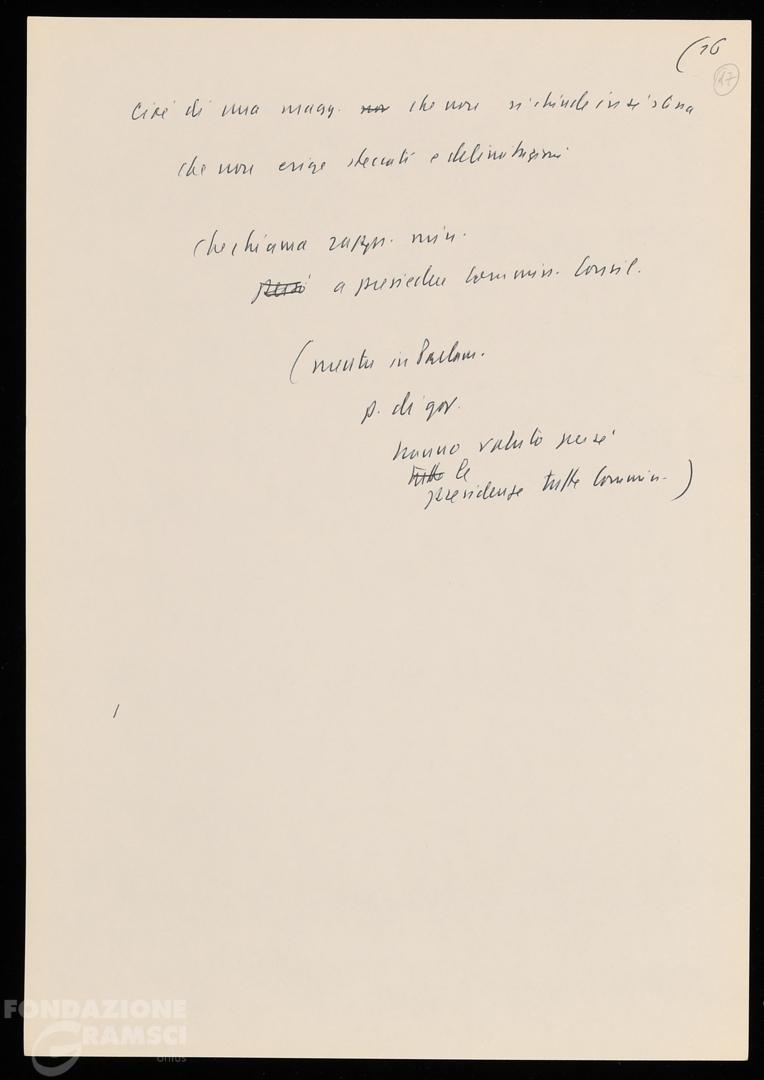 (16
27
Cioè di una magg. non che non si chiude in sé stessa
che non erige steccati e delimitazioni
che chiama rappr. min.
a presiedere commiss. consil.
(mentre in Parlam.
p. di gov.
hanno voluto per sé
tutte le
presidenze tutte commiss.)
FONDAZIONE
GRAMSCI
onlus